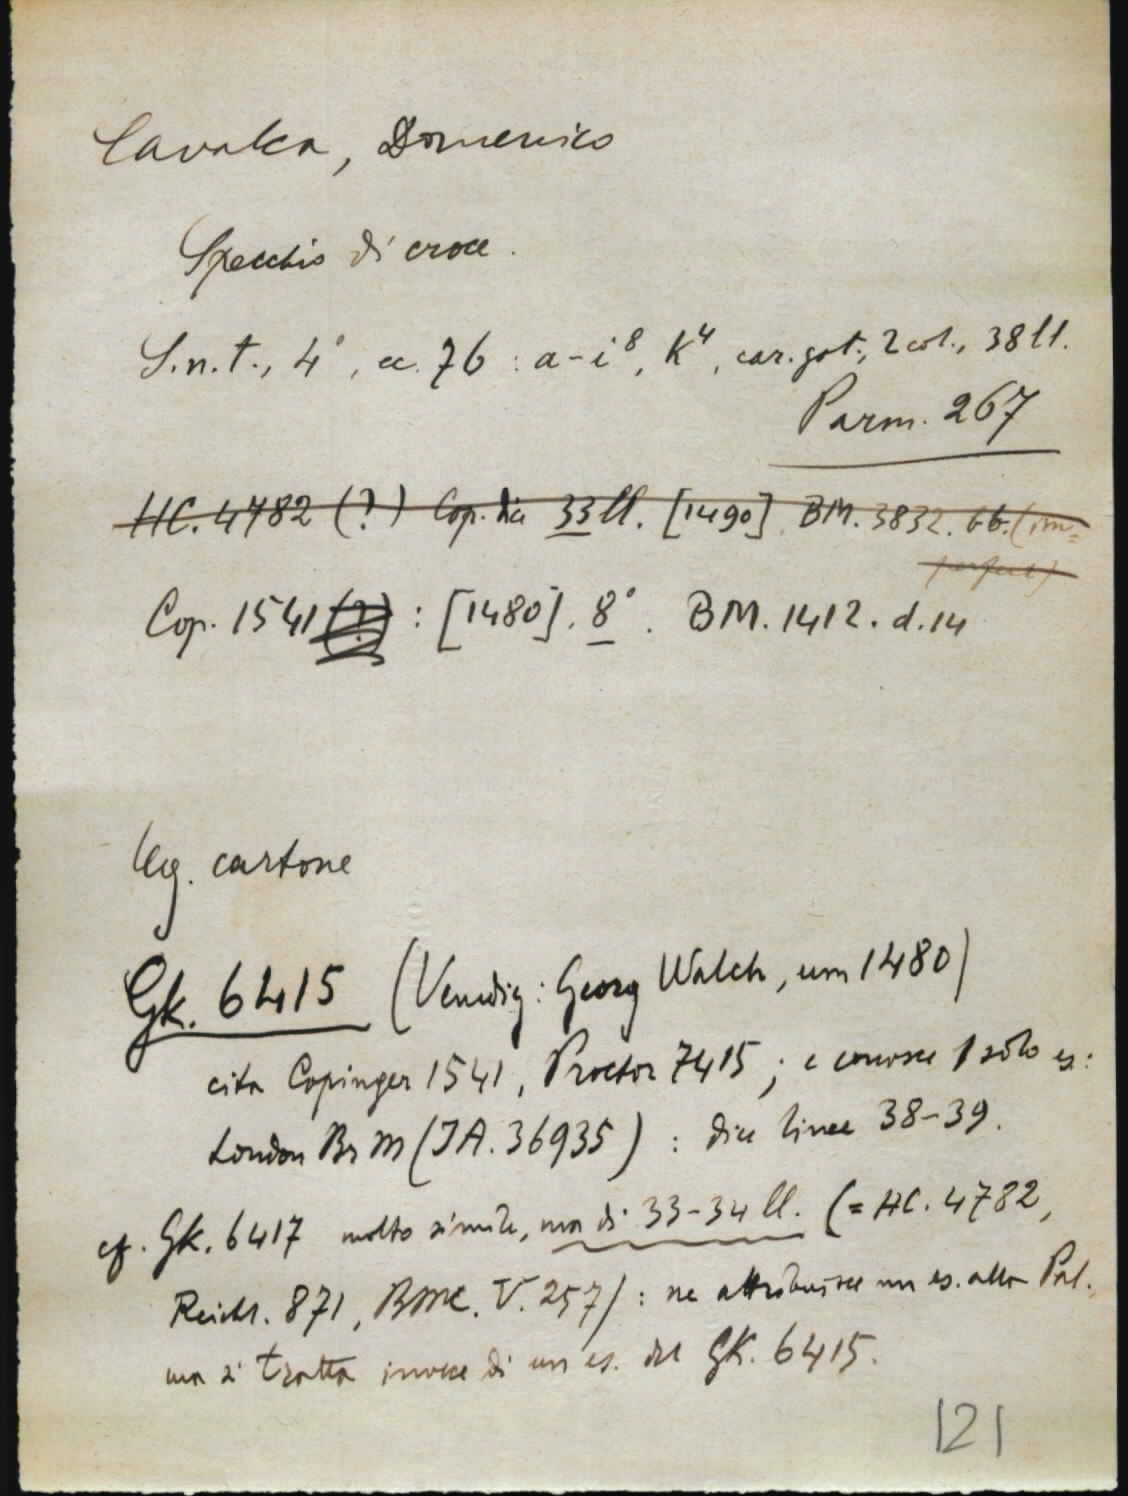 Cavalca, Domenico
Specchio di croce.
S.n.t., 4°, cc. 76 : a-i⁸, K⁴, car. got., 2 col., 38 ll.
Parm. 267
HC. 4782 (?) Cop. dice 33 ll. [1490] BM. 3832. bb. (im=
perfect)
Cop. 1541 (?) : [1480]. 8°. BM. 1412. d. 14
leg. cartone
Gk. 6415 (Venedig : Georg Walch, um 1480)
cita Copinger 1541, Proctor 7415 ; e conosce 1 solo es:
London Br M (IA. 36935) : dice linee 38-39.
cf. Gk. 6417 molto simile, ma di 33-34 ll. (= HC. 4782,
Reichl. 871, BMC. V. 257) : ne attribuisce un es. alla Pal.
ma si tratta invece di un es. del GK. 6415.
121